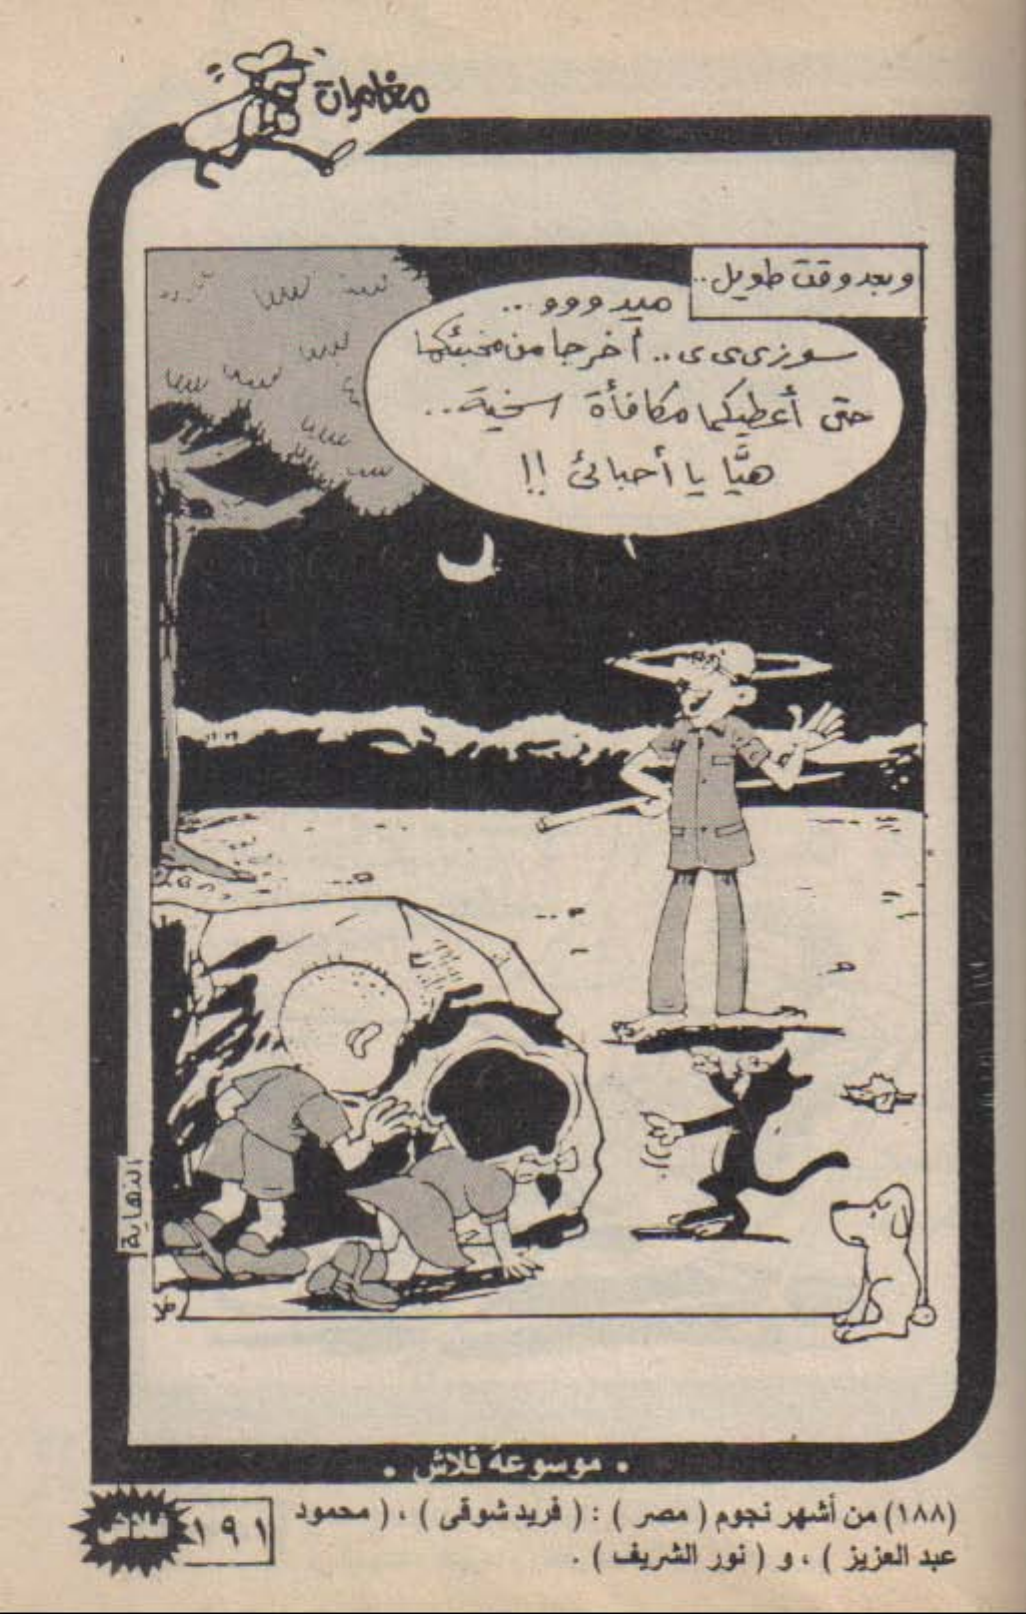 مغامرات
وبعد وقت طويل..
ميدووو...
سوزىىى.. أخرجا من مخبئكما
حتى أعطيكما مكافأة سخية..
هيَّا يا أحبائى !!
النهاية
• موسوعة فلاش •
(١٨٨) من أشهر نجوم ( مصر ) : ( فريد شوقى ) ، ( محمود
عبد العزيز ) ، و ( نور الشريف ) .
١٩١